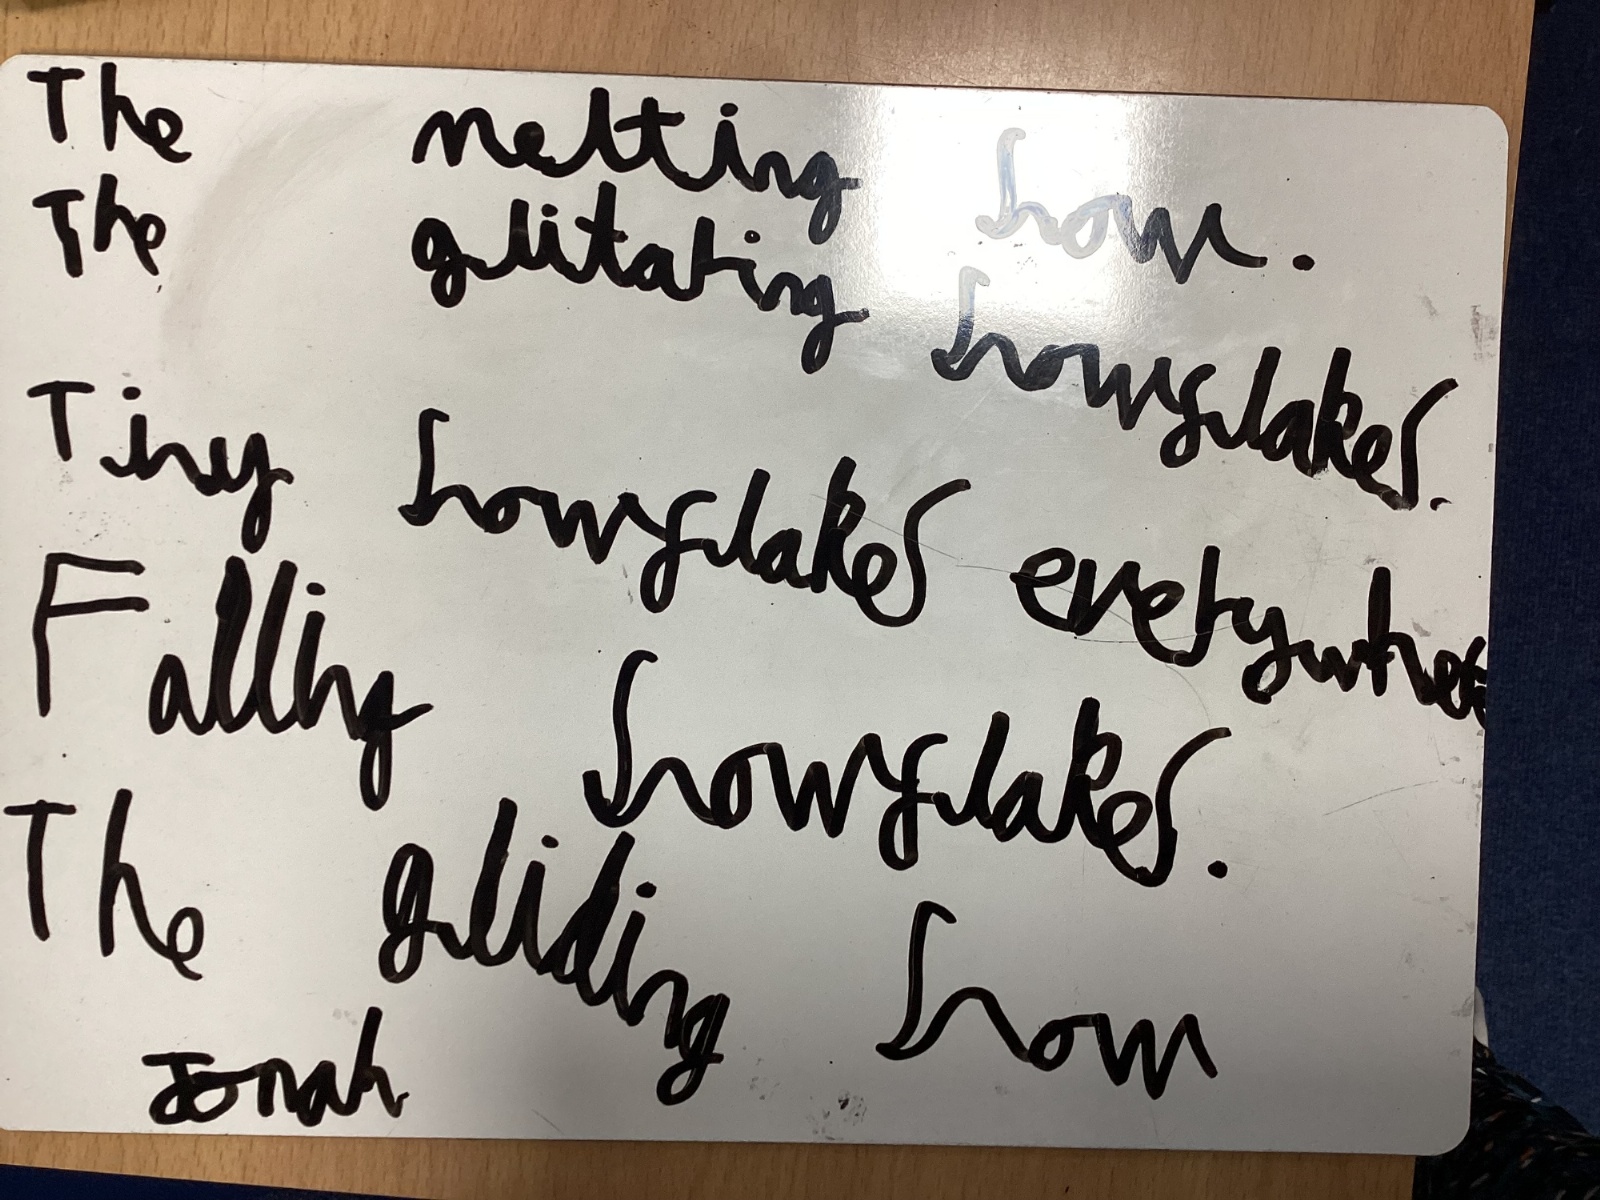 The melting snow.
The glitaring snowflakes.
Tiny snowflakes everywhere
Falling snowflakes.
The gliding snow
Jonah